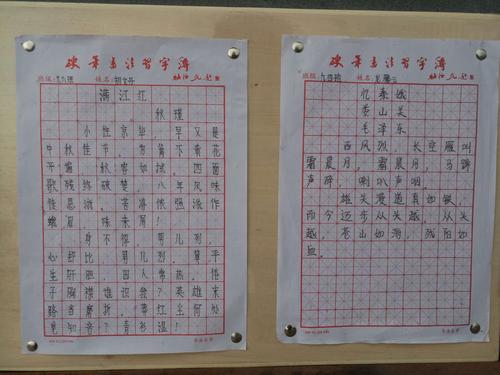 硬笔书法习字簿
班级：
姓名：
满江红
秋瑾
小住京华，早又是
中秋佳节，为篱下黄花
开遍，秋容如拭，四面
歌残终破楚，八年风味
徒思浙，苦将侬强派作
蛾眉，殊未屑！
身不得，男儿列，
心却比，男儿烈！算平
生肝胆，因人常热，俗
子胸襟谁识我？英雄末
路当磨折，莽红尘何处
觅知音？青衫湿！
硬笔书法习字簿
班级：
姓名：
忆秦娥
娄山关
毛泽东
西风烈，长空雁叫
霜晨月，霜晨月，马蹄
声碎，喇叭声咽。
雄关漫道真如铁，
而今迈步从头越，从头
越，苍山如海，残阳如
血。